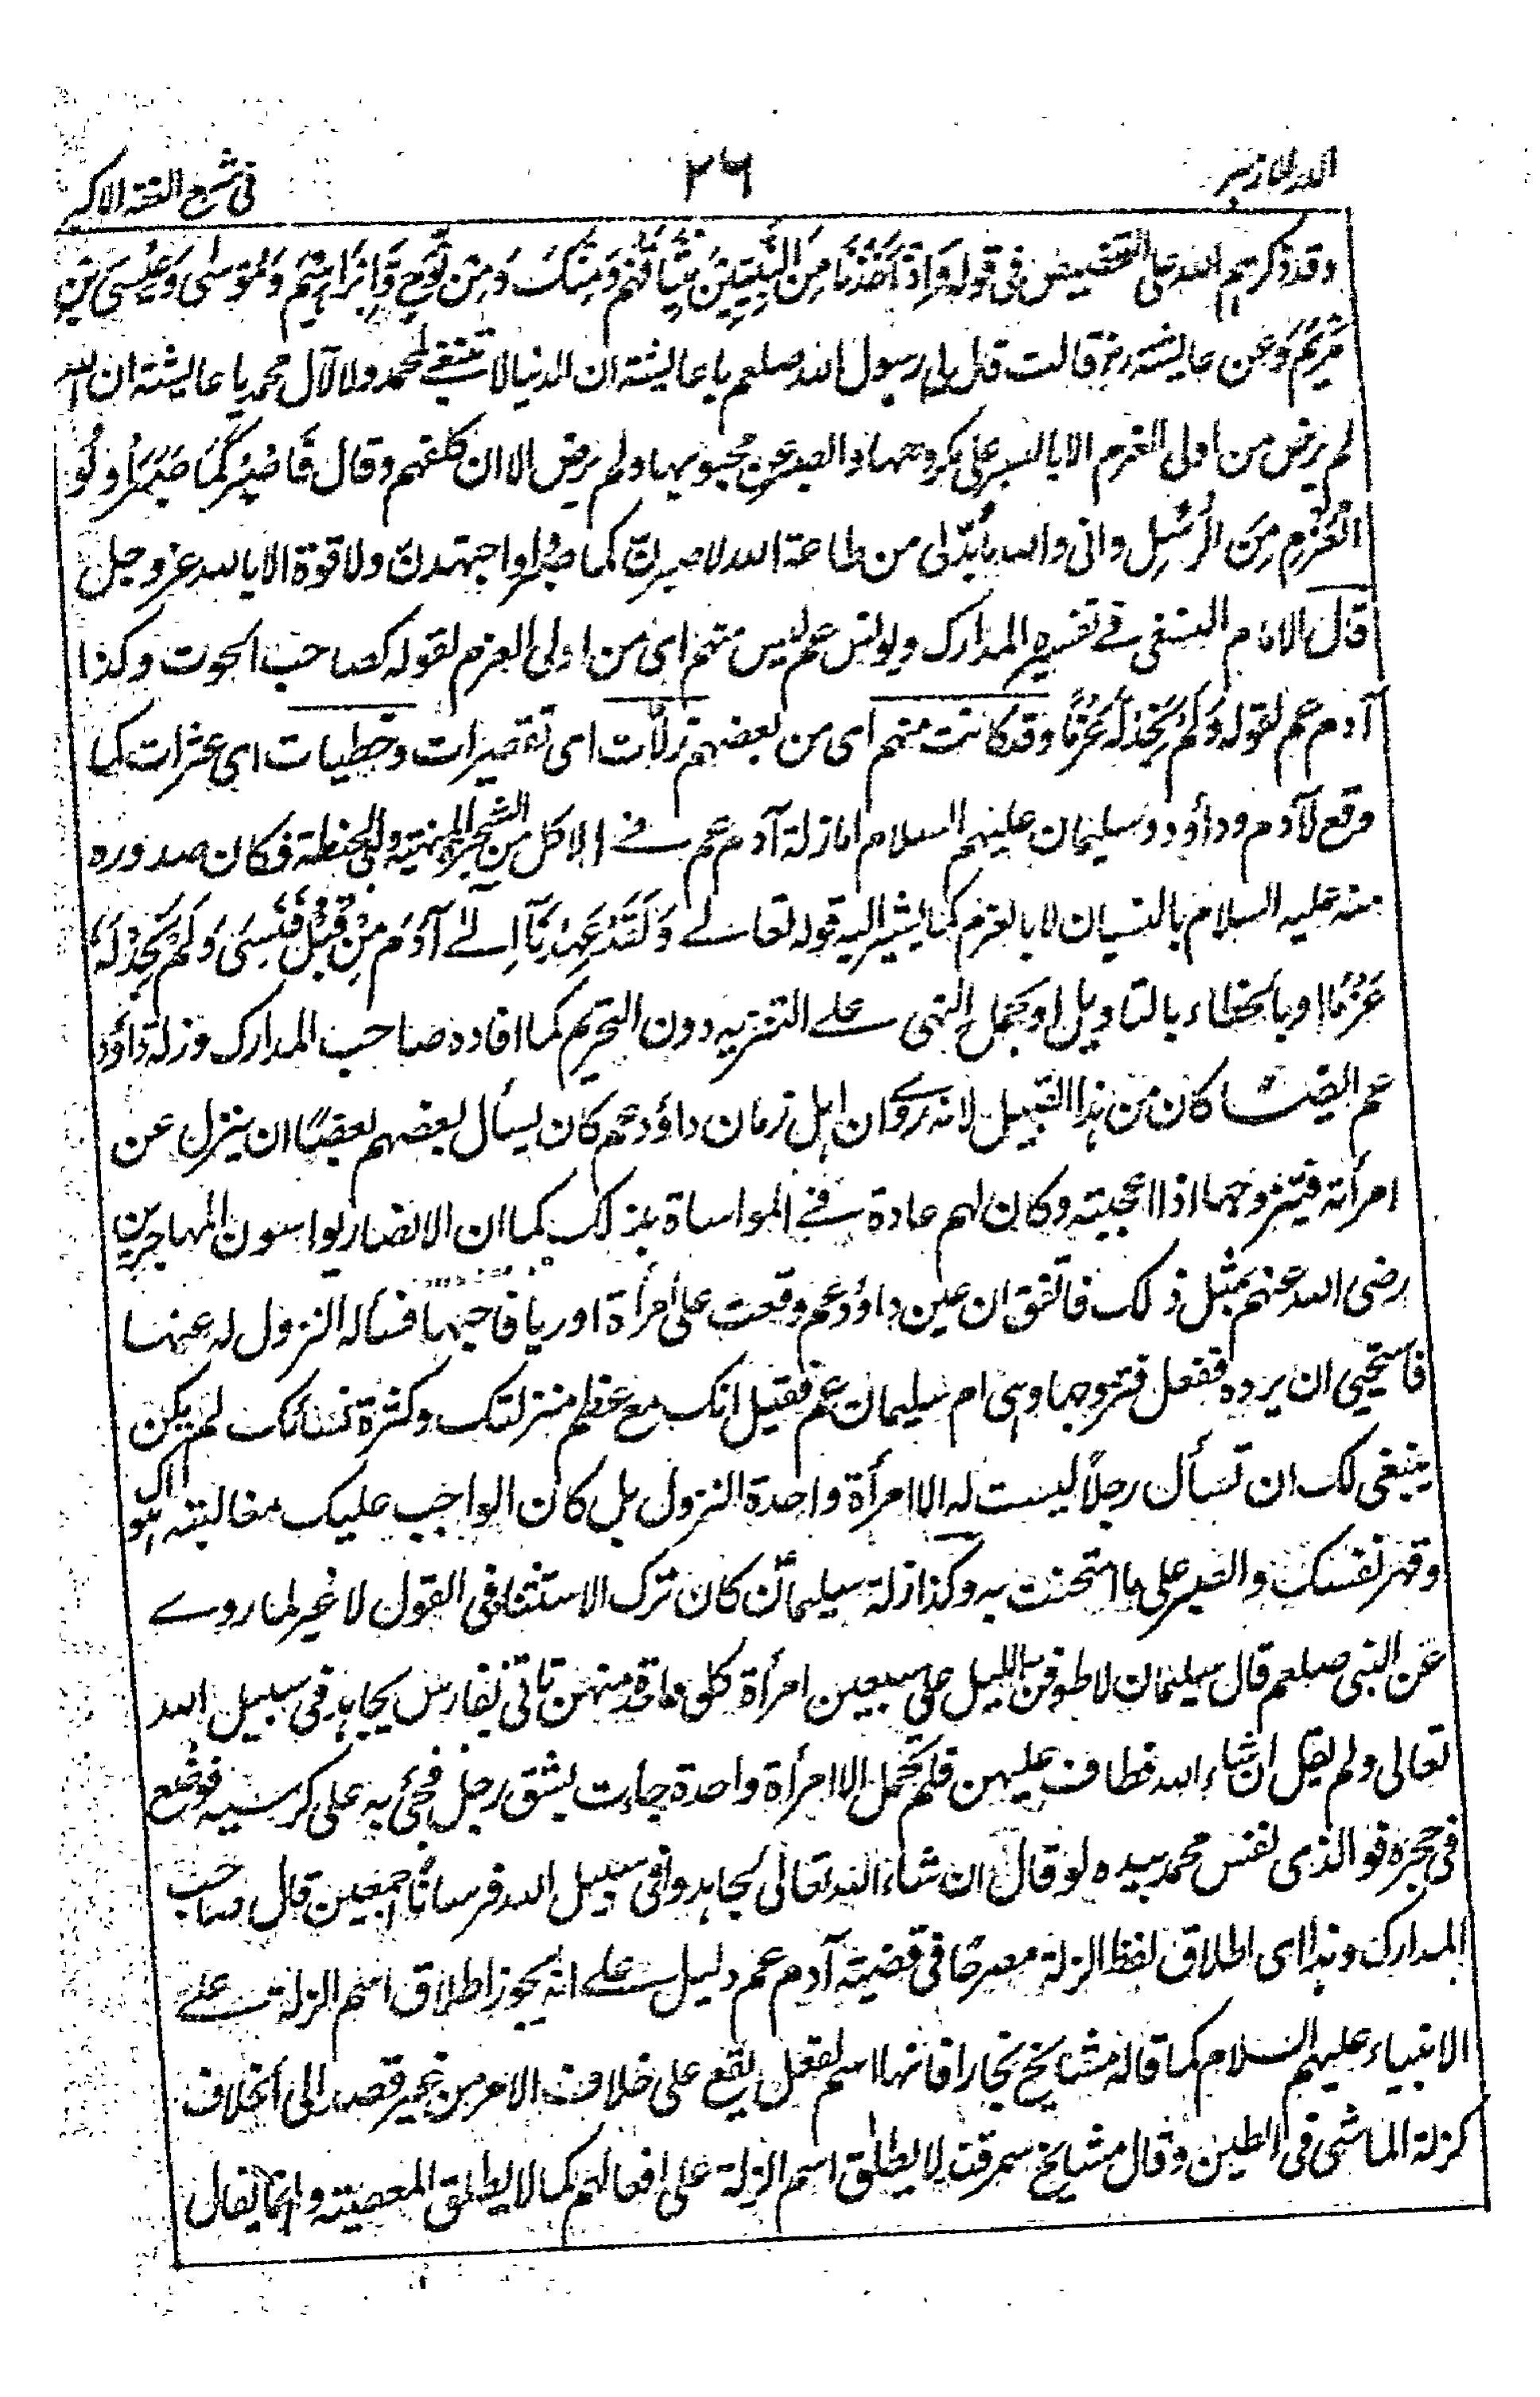 الدر الازهر
٢٦
فى شرح الفقه الاكبر
وقد ذكرهم الله على التخصيص فى قوله وَاِذْ اَخَذْنَا مِنَ النَّبِيِّينَ مِيْثَاقَهُمْ وَمِنْكَ وَمِنْ نُوْحٍ وَّاِبْرَاهِيْمَ وَمُوْسٰى وَعِيْسَى بْنِ
مَرْيَمَ وَعن عايشة رض قالت قال لى رسول الله صلعم يا عايشة ان الدنيا لا تنبغى لمحمد ولا لآل محمد يا عايشة ان الله
لم يرض من اولى العزم الا بالصبر على مكروهها والصبر عن محبوبها ولم يرض الا ان كلفهم وقال فَاصْبِرْ كَمَا صَبَرَ اُولُو
الْعَزْمِ مِنَ الرُّسُلِ وانى والله ما بُدّ لى من طاعة الله لاصبرنّ كما صبروا واجتهدنّ ولا قوة الا بالله عز وجل
قال الامام النسفى فے تفسيره المدارك ويونس عم ليس منهم اى من اولى العزم لقوله كصاحب الحوت وكذا
آدم عم لقوله وَلَمْ نَجِدْ لَهُ عَزْمًا وقد كانت منهم اى من بعضهم زلّات اى تقصيرات وخطيات اى عثرات كما
وقع لآدم وداؤد وسليمان عليهم السلام اما زلة آدم عم فے الاكل من الشجرة المنهية وهى الحنطة فكان صدوره
منه عليه السلام بالنسيان لا بالعزم كما يشير اليه قوله تعالے وَلَقَدْ عَهِدْنَآ اِلٰے آدَمَ مِنْ قَبْلُ فَنَسِىَ وَلَمْ نَجِدْ لَهُ
عَزْمًا او بالخطاء بالتاويل او بحمل النهى علے التنزيه دون التحريم كما افاده صاحب المدارك وزلة داؤد
عم ايضا كان من هذا القبيل لانه روے ان اهل زمان داؤد عم كان يسأل بعضهم بعضًا ان ينزل عن
امرأته فيتزوجها اذا اعجبته وكان لهم عادة فے المواساة بذلك كما ان الانصار يواسون المهاجرين
رضى الله عنهم بمثل ذلك فاتفق ان عين داؤد عم وقعت على امرأة اوريا فاحبها فسأله النزول له عنها
فاستحيى ان يرده ففعل فتزوجها وهى ام سليمان عم فقيل انك مع عظم منزلتك وكثرة نسائك لم يكن
ينبغى لك ان تسأل رجلاً ليست له الا امرأة واحدة النزول بل كان الواجب عليك مغالبة هواك
وقهر نفسك والصبر على ما امتحنت به وكذا زلة سليمانؑ كان ترك الاستثنا فى القول لا غير لما روے
عن النبى صلعم قال سليمان لاطوفن بالليل على سبعين امرأة كل واحدة منهن تاتى بفارس يجاهد فى سبيل الله
تعالى ولم يقل ان شاء الله فطاف عليهن فلم تحمل الا امرأة واحدة جاءت بشق رجل فجئ به على كرسيه فوضع
فى حجره فوالذى نفس محمد بيده لو قال ان شاء الله تعالى لجاهدوا فى سبيل الله فرسانًا اجمعين قال صاحب
المدارك وهذا اى اطلاق لفظ الزلة مصرحًا فى قضية آدم عم دليل علے انه يجوز اطلاق اسم الزلة علے
الانبياء عليهم السلام كما قاله مشايخ بخارا فانها اسم لفعل يقع على خلاف الامر من غير قصد الى الخلاف
كزلة الماشى فى الطين وقال مشايخ سمرقند لا يطلق اسم الزلة على افعالهم كما لا يطلق المعصية وانما يقال